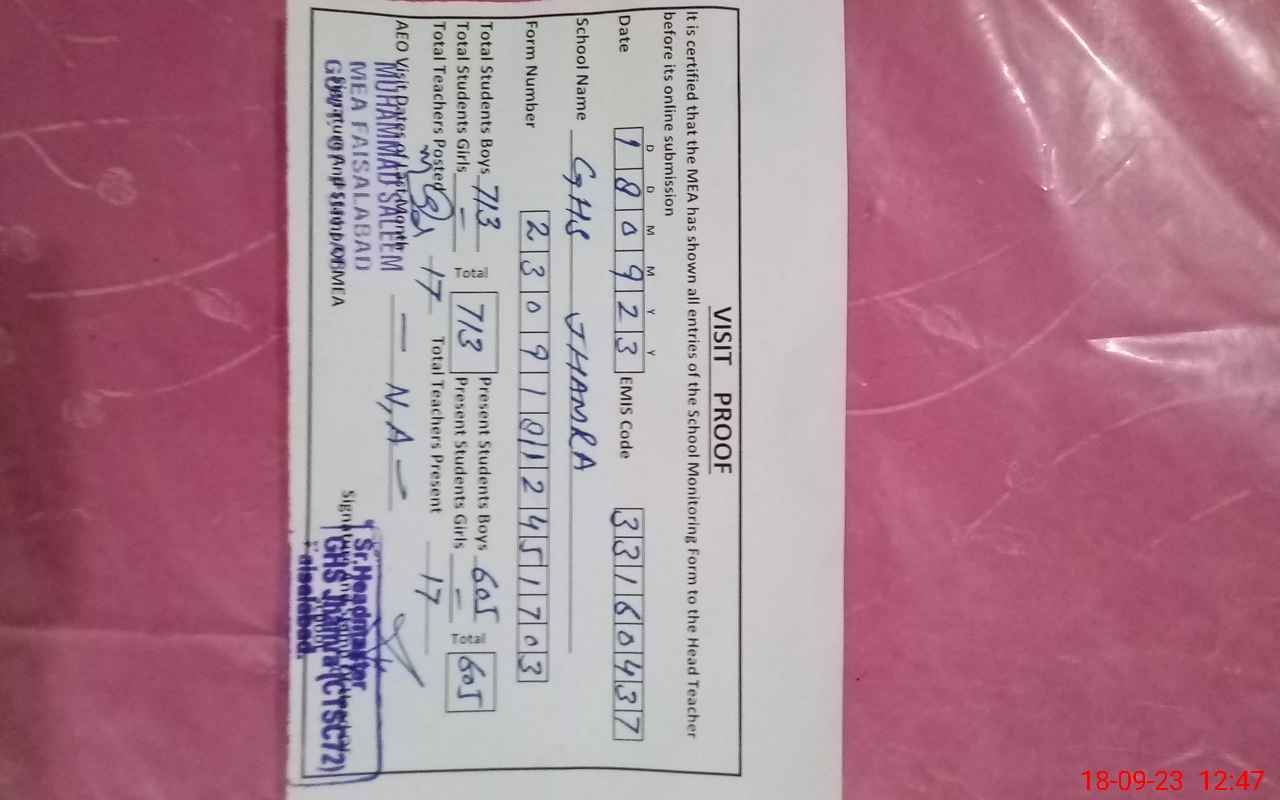 VISIT PROOF
It is certified that the MEA has shown all entries of the School Monitoring Form to the Head Teacher
before its online submission
D D M M Y Y
Date 180923 EMIS Code 33160437
School Name GHS JHAMRA
Form Number 23091812451703
Total Students Boys 713 Present Students Boys 605
Total Students Girls - Total 713 Present Students Girls - Total 605
Total Teachers Posted 17 Total Teachers Present 17
AEO Visit Date of Last Month - N,A -
MUHAMMAD SALEEM
MEA FAISALABAD
Signature And Stamp Of MEA
Sr.Headmaster
GHS Jhamra (CTSC72)
Faisalabad.
18-09-23 12:47